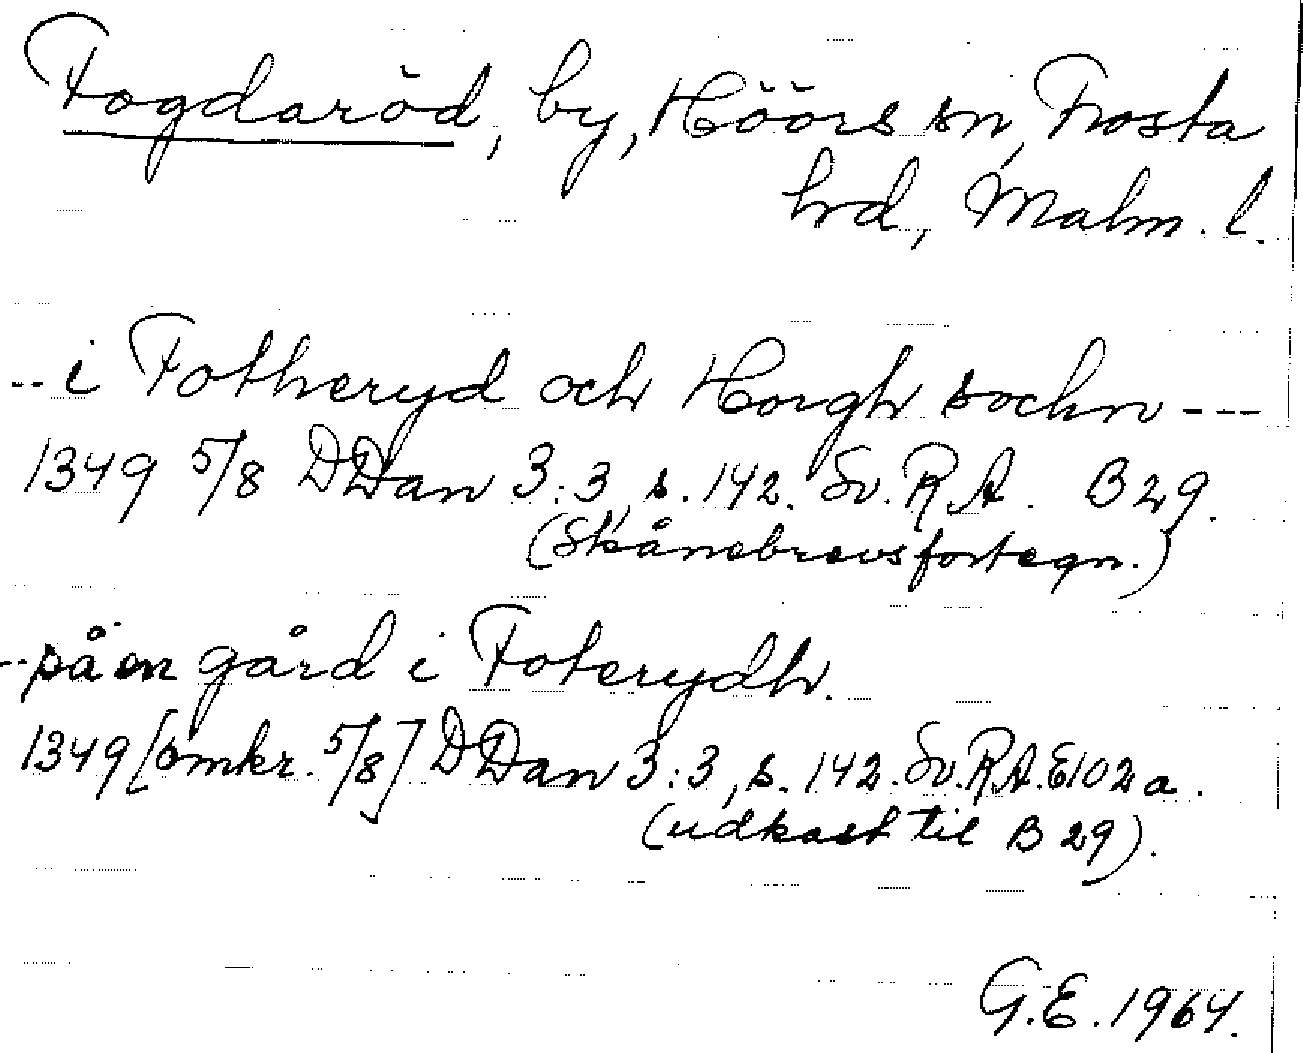 Fogdaröd, by, Höörs sn, Frosta
hrd, Malm. l.
-- i Fotheryd och Horgh sochn ---
1349 5/8 DDan 3:3, s. 142. Sv. R A. B 29.
(Skånebrevsfortegn.)
-- på en gård i Foterydh.
1349 [omkr. 5/8] DDan 3:3, s. 142. Sv. RA. E102a.
(udkast til B 29).
G.E. 1964.